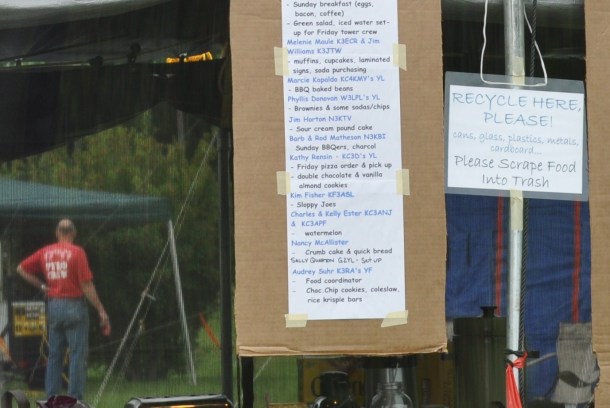 - Sunday breakfast (eggs,
bacon, coffee)
- Green salad, iced water set-
up for Friday tower crew
Melenie Maule K3ECR & Jim
Williams K3JTW
- muffins, cupcakes, laminated
signs, soda purchasing
Marcie Kapaldo KC4KMY's YL
- BBQ baked beans
Phyllis Donovan W3LPL's YL
- Brownies & some sodas/chips
Jim Horton N3KTV
- Sour cream pound cake
Barb & Rod Matheson N3KBI
Sunday BBQers, charcol
Kathy Rensin - KC3D's YL
- Friday pizza order & pick up
- double chocolate & vanilla
almond cookies
Kim Fisher KF3ASL
- Sloppy Joes
Charles & Kelly Ester KC3ANJ
& KC3AFF
- watermelon
Nancy McAllister
- Crumb cake & quick bread
SALLY G2YL - SET UP
Audrey Suhr K3RA's YF
- Food coordinator
- Choc.Chip cookies, coleslaw,
rice krispie bars
RECYCLE HERE,
PLEASE!
cans, glass, plastics, metals,
cardboard...
Please Scrape Food
Into Trash